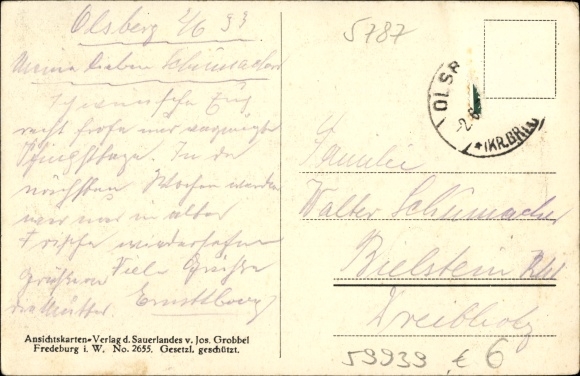 Olsberg 2/6 33
Meine Lieben Schumachers
Ich wünsche Euch
recht frohe und vergnügte
Pfingsttage. In den
nächsten Wochen werden
wir uns in alter
Frische wiedersehen
Viele Grüße
die Mutter
5787
OLSB
-2.6
*(KR.BRIL
Familie
Walter Schumacher
Bielstein Rhl
Dreibholz
Ansichtskarten-Verlag d. Sauerlandes v. Jos. Grobbel
Fredeburg i. W. No. 2655. Gesetzl. geschützt.
59939 € 6